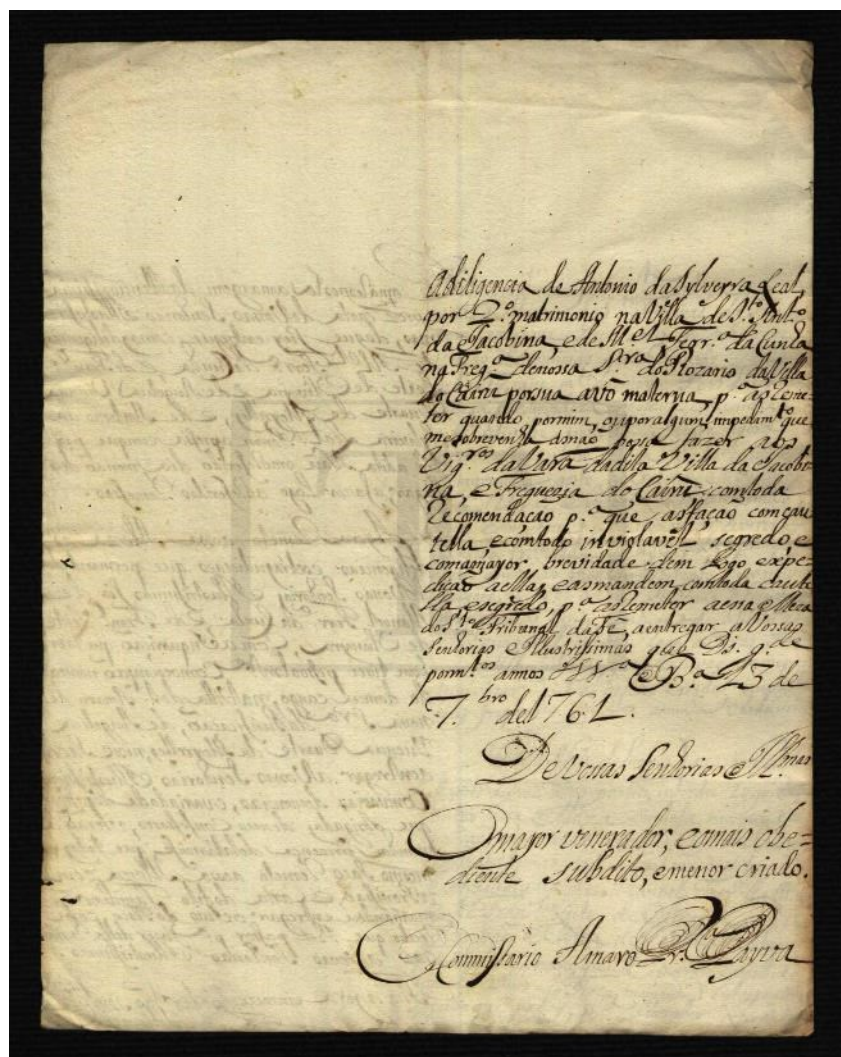 A diligencia de Antonio da Sylveyra Leal,
por 2.º matrimonio na Villa de S.to Ant.º
da Jacobina, e de M.el Tegr.ª da Cunha
na Freg.ª de nossa Snr.ª do Rozario da Villa
do Cairú por sua avó materna, p.ª as Reme-
ter quando por mim, ou por algum impedim.to que
me sobrevenha as não possa fazer aos
Vig.ros da Vara da dita Villa da Jacobi-
na, e Freguezia do Cairú com toda
Recomendação p.ª que as fação com cau-
tella, e com todo inviolavel segredo, e
com a mayor brevidade dem logo expe-
dição a ella, e as mandem com toda caute-
lla, e segredo, p.ª as Remeter a ena Meza
do S.to Tribunal da Fé, a entregar a Vossas
Senhorias e Illustrissimas que Ds. g.de
por m.tos annos B.ª 13 de
7.bro de 1761.
De Vossas Senhorias e Ill.mas
O mayor venerador, e o mais obe=
diente subdito, e menor criado.
O Commissario Amaro Pr.ª Payva